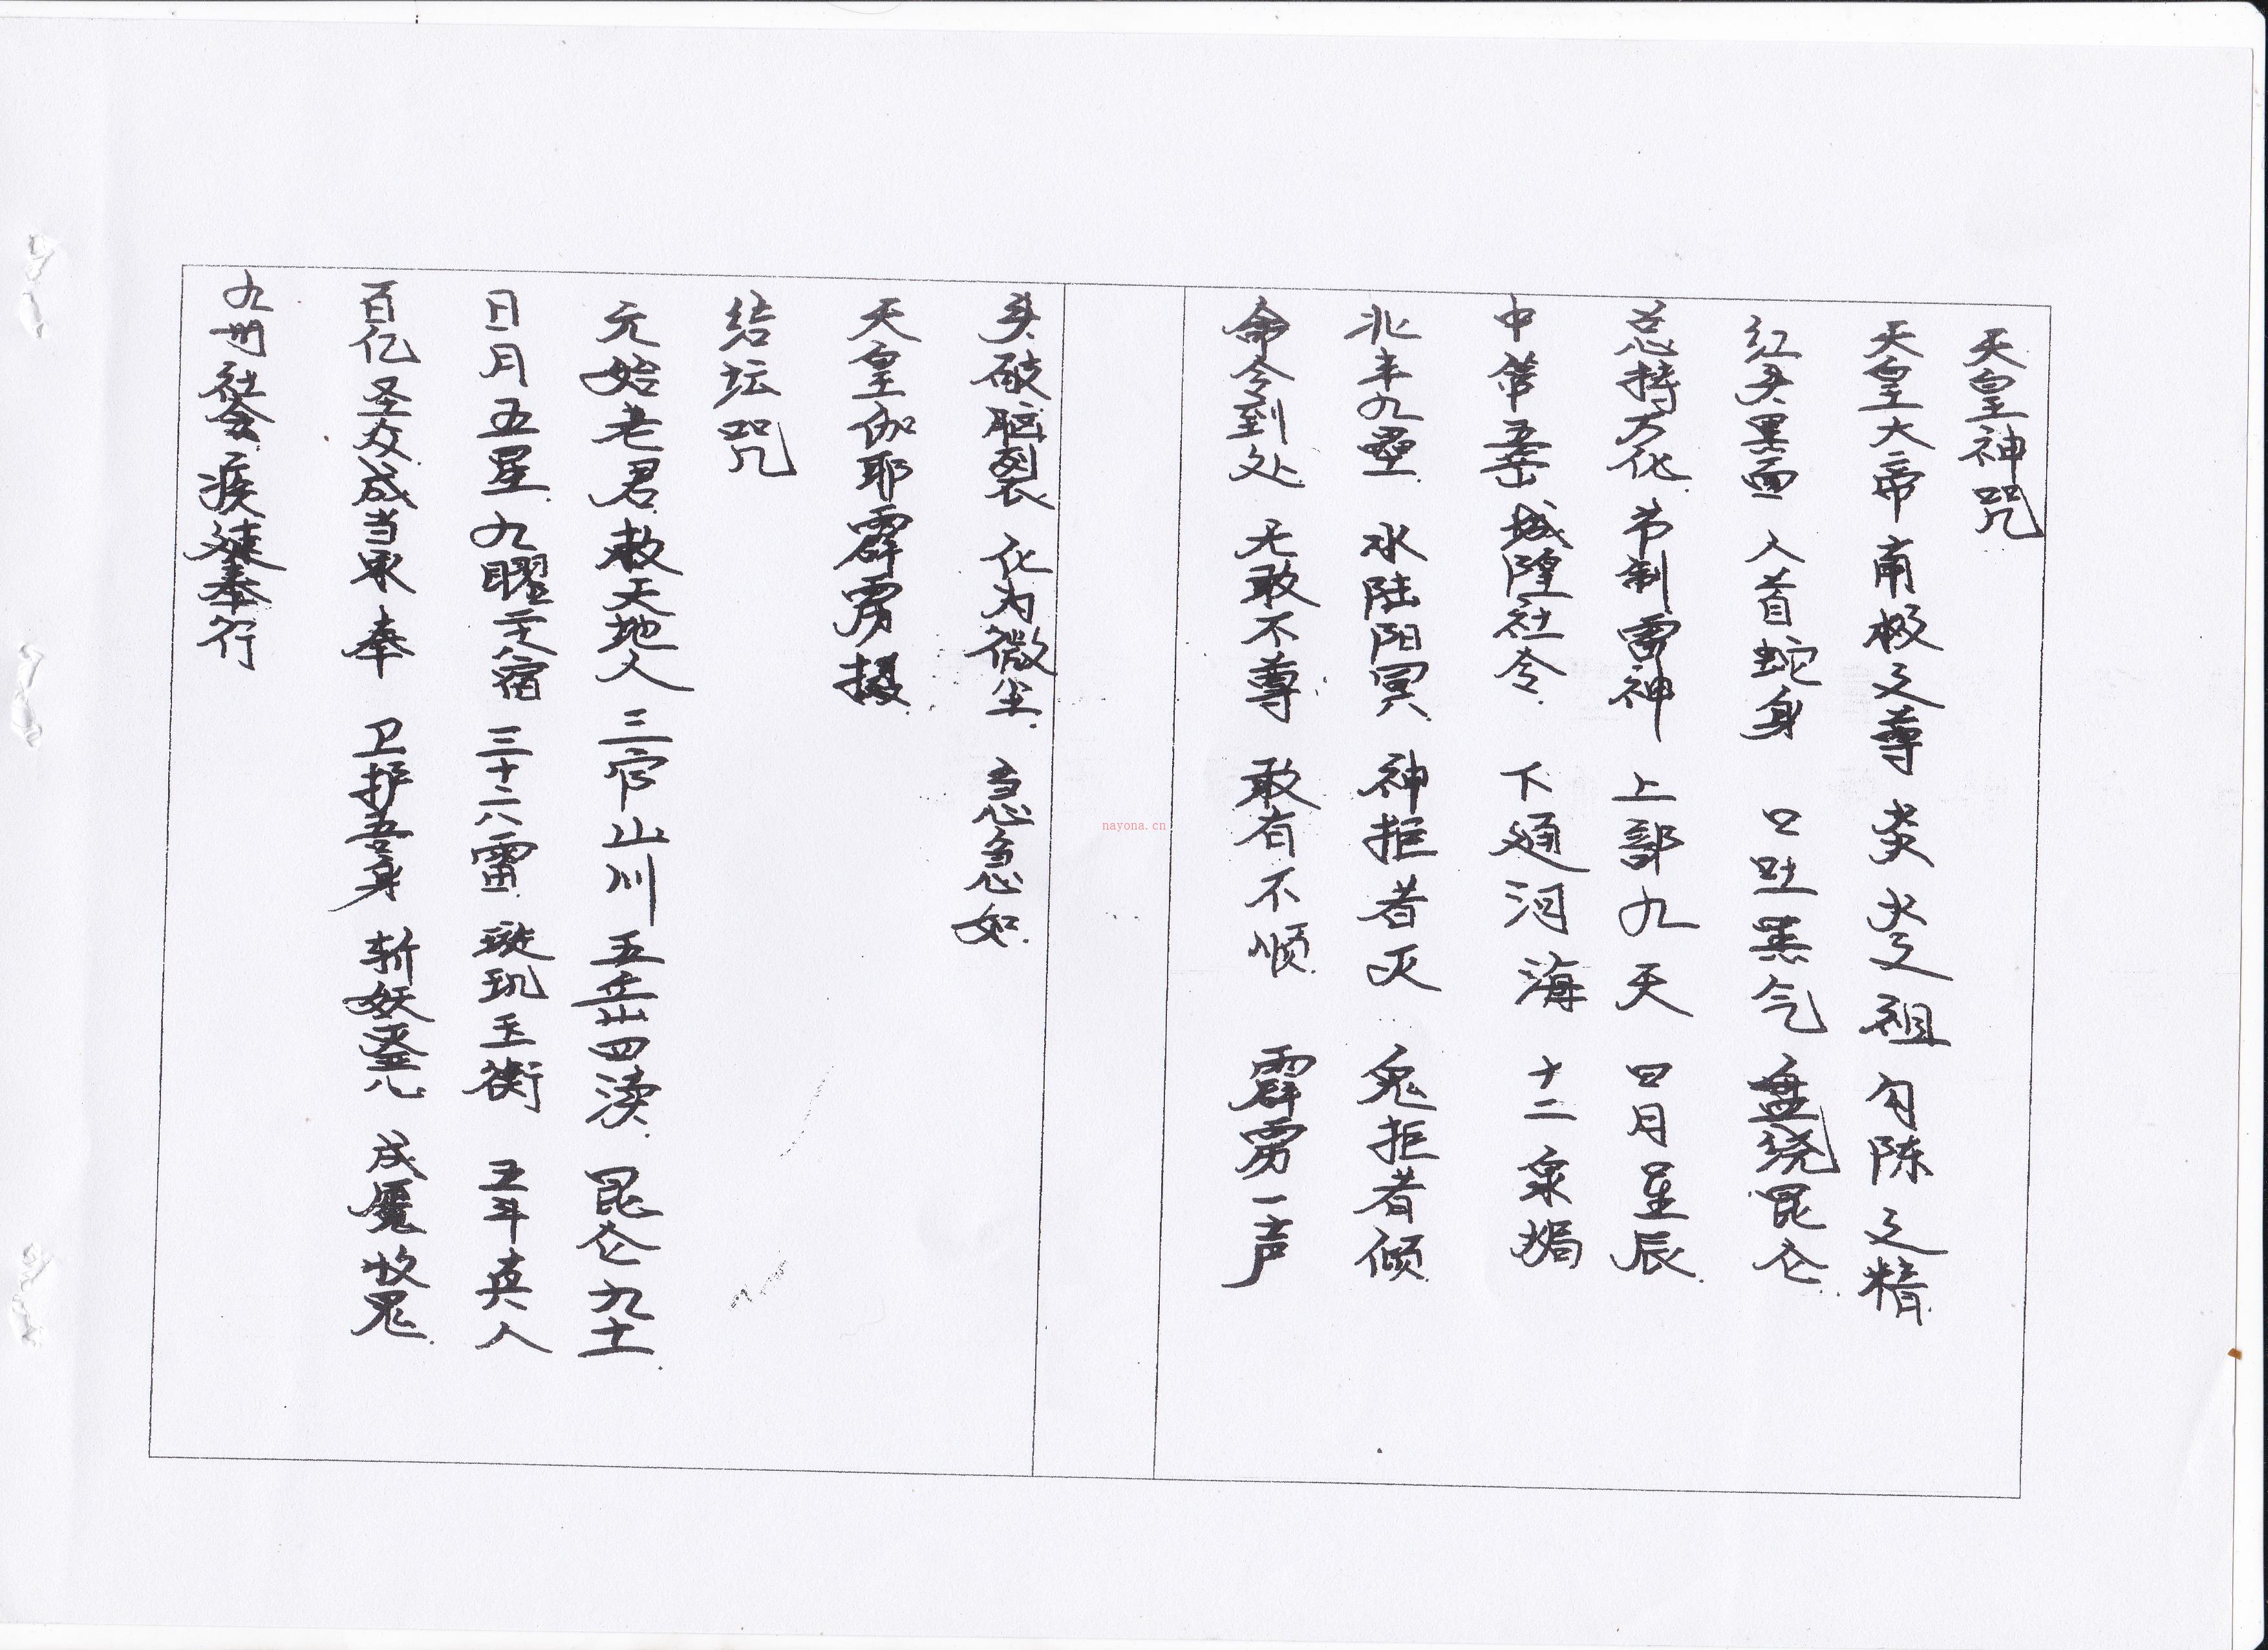 天皇神咒
天皇大帝 南极之尊 炎炎火之祖 勾陈之精
红头黑面 人首蛇身 口吐黑气 盘绕昆仑
总持万化 节制雷神 上部九天 日月星辰
中管五岳 城隍社令 下通河海 十二泉
北丰九垒 水陆阳冥 神拒者灭 鬼拒者倾
命令到处 无敢不尊 敢有不顺 霹雳一声
nayona.cn
头破脑裂 化为微尘 急急如
天皇伽耶霹雳摄
结坛咒
元始老君 敕天地人 三官山川 五岳四渎 昆仑九土
日月五星 九曜二十八宿 三十六雷 璇玑玉衡 五斗真人
百亿圣众 咸当承奉 卫护吾身 斩妖灭 伐魔收鬼
九州社会 疾速奉行